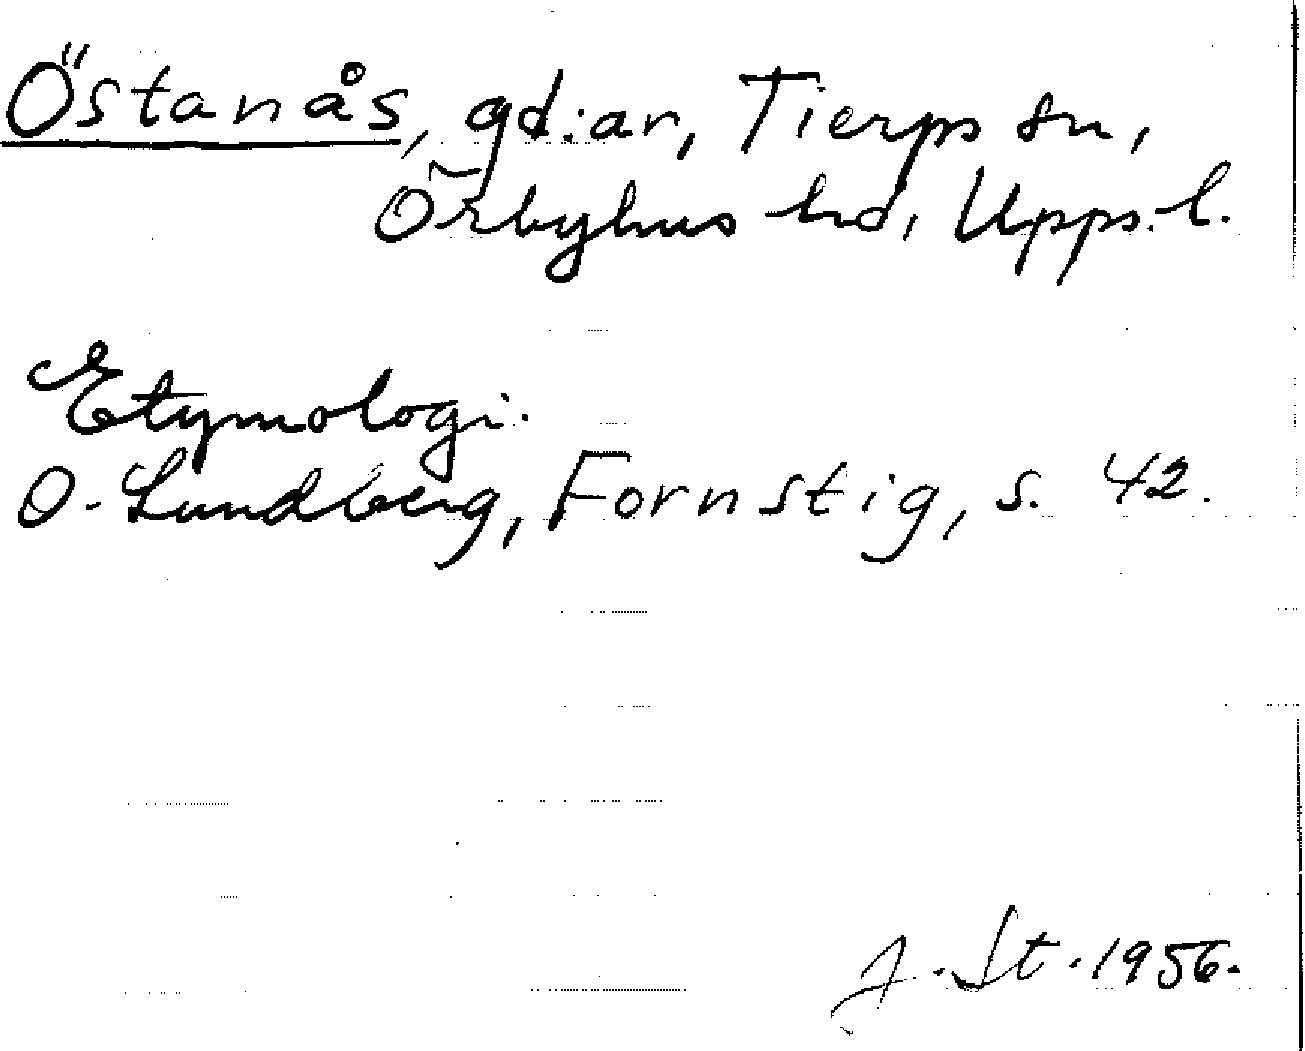 Östanås, gd:ar, Tierps sn,
Örbyhus hd, Upps. l.
Etymologi.
O. Lundberg, Fornstig, s. 42.
A. St. 1956.